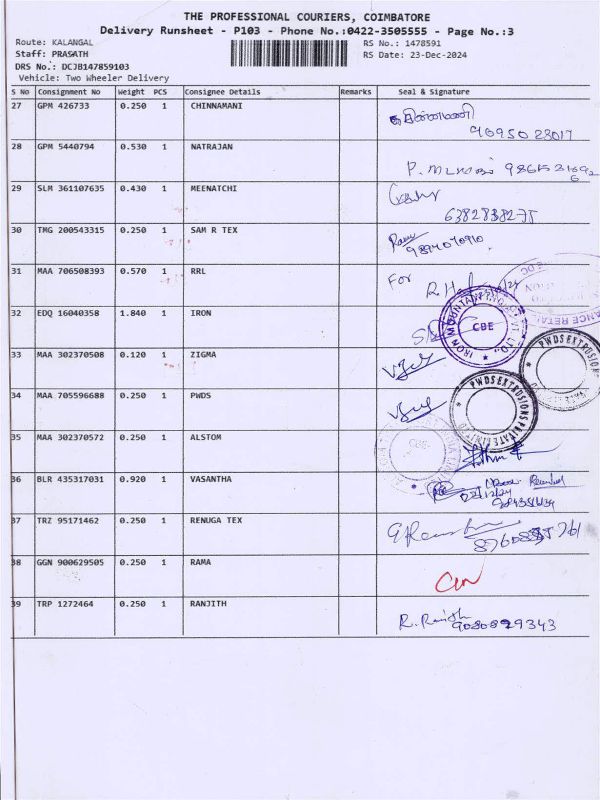 THE PROFESSIONAL COURIERS, COIMBATORE
Delivery Runsheet - P103 - Phone No.:0422-3505555 - Page No.:3
Route: KALANGAL
RS No.: 1478591
Staff: PRASATH
RS Date: 23-Dec-2024
DRS No.: DCJB147859103
Vehicle: Two Wheeler Delivery
S No Consignment No Weight PCS Consignee Details Remarks Seal & Signature
27 GPM 426733 0.250 1 CHINNAMANI
சின்னமணி
28 GPM 5440794 0.530 1 NATRAJAN
29 SLM 361107635 0.430 1 MEENATCHI
30 TMG 200543315 0.250 1 SAM R TEX
31 MAA 706508393 0.570 1 RRL
For
32 EDQ 16040358 1.840 1 IRON
IRON MOUNTAIN
CBE
33 MAA 302370508 0.120 1 ZIGMA
PWDS EXTRUSIONS
34 MAA 705596688 0.250 1 PWDS
PWDS EXTRUSIONS PRIVATE LIMITED
35 MAA 302370572 0.250 1 ALSTOM
CBE
36 BLR 435317031 0.920 1 VASANTHA
37 TRZ 95171462 0.250 1 RENUGA TEX
38 GGN 900629505 0.250 1 RAMA
39 TRP 1272464 0.250 1 RANJITH
R. Ranjith
9080829343